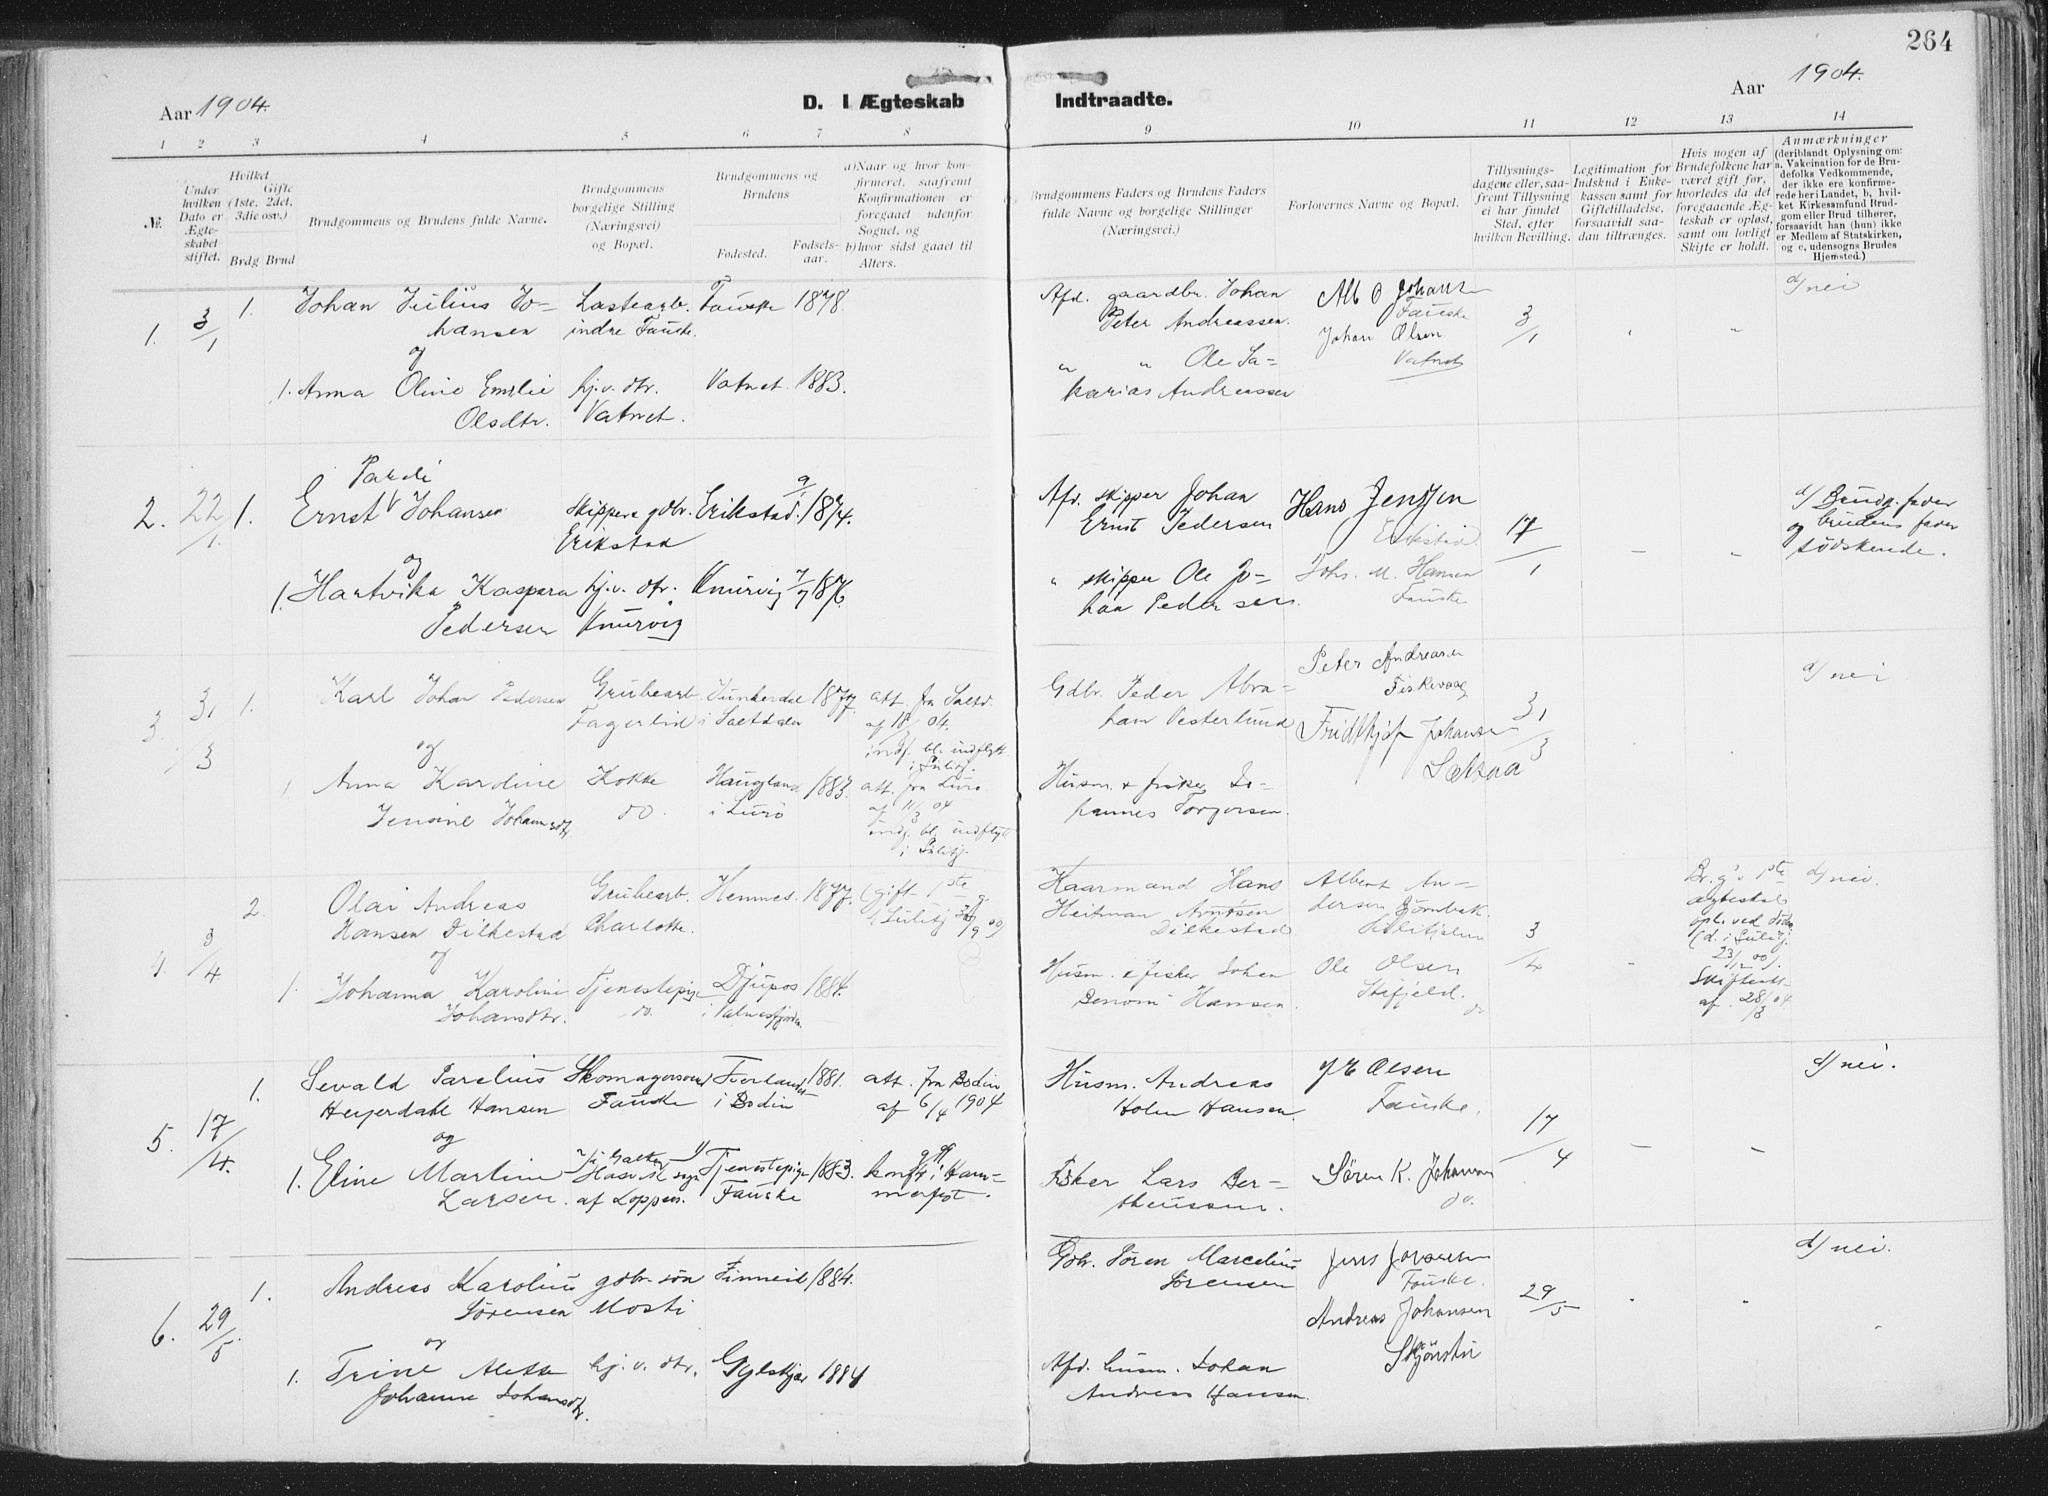 264
Aar 1904.
D. I Ægteskab Indtraadte.
Aar 1904.
1 2 3 4 5 6 7 8 9 10 11 12 13 14
№.
Under hvilken Dato er Ægteskabet stiftet.
Hvilket Gifte (1ste, 2det, 3die osv.)
Brdg Brud
Brudgommens og Brudens fulde Navne.
Brudgommens borgelige Stilling (Næringsvei) og Bopæl.
Brudgommens og Brudens
Fødested.
Fødselsaar.
a) Naar og hvor konfirmeret, saafremt Konfirmationen er foregaaet udenfor Sognet, og
b) hvor sidst gaaet til Alters.
Brudgommens Faders og Brudens Faders fulde Navne og borgelige Stillinger (Næringsvei.)
Forlovernes Navne og Bopæl.
Tillysningsdagene eller, saafremt Tillysning ei har fundet Sted, efter hvilken Bevilling.
Legitimation for Indskud i Enkekassen samt for Gifletilladelse, forsaavidt saadan tiltrænges.
Hvis nogen af Brudefolkene har været gift før, hvorledes da det foregaaende Ægteskab er opløst, samt om lovligt Skifte er holdt.
Anmærkninger (deriblandt Oplysning om: a. Vakcination for de Brudefolks Vedkommende, der ikke ere konfirmerede her i Landet, b, hvilket Kirkesamfund Brudgom eller Brud tilhører, forsaavidt han (hun) ikke er Medlem af Statskirken, og c, udensogns Brudes Hjemsted.)
1. 3/1 1. Johan Julius Jo=
hansen
Lastearb.
indre Fauske.
Fauske 1878.
Afd. gaardbr. Johan
Peter Andreassen.
Alb O Johans
Fauske
Johan Olsen
Vatnet
3/1
d/ nei
og
1. Anna Oline Emelie
Olsdtr.
hj.v. dtr.
Vatnet.
Vatnet. 1883.
" " Ole Za=
karias Andreassen
2. 22/1. 1. Pareli
Ernst Johansen
skipper gdbr.
Erikstad
Erikstad. 1874.
Afd. skipper Johan
Ernst Pedersen
Hans Jenssen
Erikstad.
17/1
d/ Brudg. fader
og brudens fader
sødskende.
og
1. Hartvika Kaspara
Pedersen
hj.v. dtr.
Knurvig
Knurvig 7/7 1876.
" skipper Ole Jo=
han Pedersen.
Johs. M. Hansen
Fauske
3. 31/3 1. Karl Johan Pedersen
Grubearb.
Fagerlid
Junkerdal
i Saltdalen
1877.
att. fra Saltd.
af 18/3 04.
indf. bl. indflytt
i Sulitj.
Gdbr. Peder Abra=
ham Vesterlund
Peter Andreasen
Fiskevaag
Fridthjof Johansen
Saksaa
31/3
d/ nei
og
1 Anna Karoline
Jensine Johannesdtr
Kokke
do.
Haugland
i Lurö
1883.
att. fra Lurö
af 11/3 04
indf. bl. indflytt
i Sulitj.
Husm. & fisker Jo=
hannes Torgersen.
4. 3/4. 2. Olai Andreas
Hansen Dilkestad
Grubearb.
Charlotte.
Hemnes. 1877.
Kaarmand Hans
Heitman Arntsen
Dilkestad
Albert An=
dersen Bjørnbak.
Sulitjelma
3/4
Br.g's 1ste
ægteskab
opl. ved døden
(d. i Sulitj.
23/12 00).
Skifteatt.
af 28/3 04.
d/ nei.
og
1. Johanna Karoline
Johansdtr.
Tjenestepige
do.
Djupos
i Valnesfjorden
1884.
Husm. & fisker Johan
Benoni Hansen.
Ole Olsen
Stifjeld.
do
5. 17/4. 1. Sevald Parelius
Heyerdahl Hansen
Skomagersvend
Fauske
i Bodin
1881.
att. fra Bodin
af 6/4 1904
Husm. Andreas
Holm Hansen.
Olsen
Fauske.
17/4
d/ nei.
og
1. Eline Martine
Larsen.
af Loppen.
Tjenestepige
Fauske
1883.
konf. i Ham=
merfest.
Fisker Lars Ber=
theussen.
Sören K. Johansen
do.
6. 29/5. 1. Andreas Karolius
Sörensen
gdbr. søn
Mosti
Finneid 1884.
Gdbr. Sören Marcelius
Sörensen
Jens Johansen
Fauske.
29/5
d/ nei.
og
1. Trine Aletta
Johanne Johansdtr.
hj.v. dtr. 1884
Afd. husm. Johan
Andreas Hansen.
Andreas Johansen